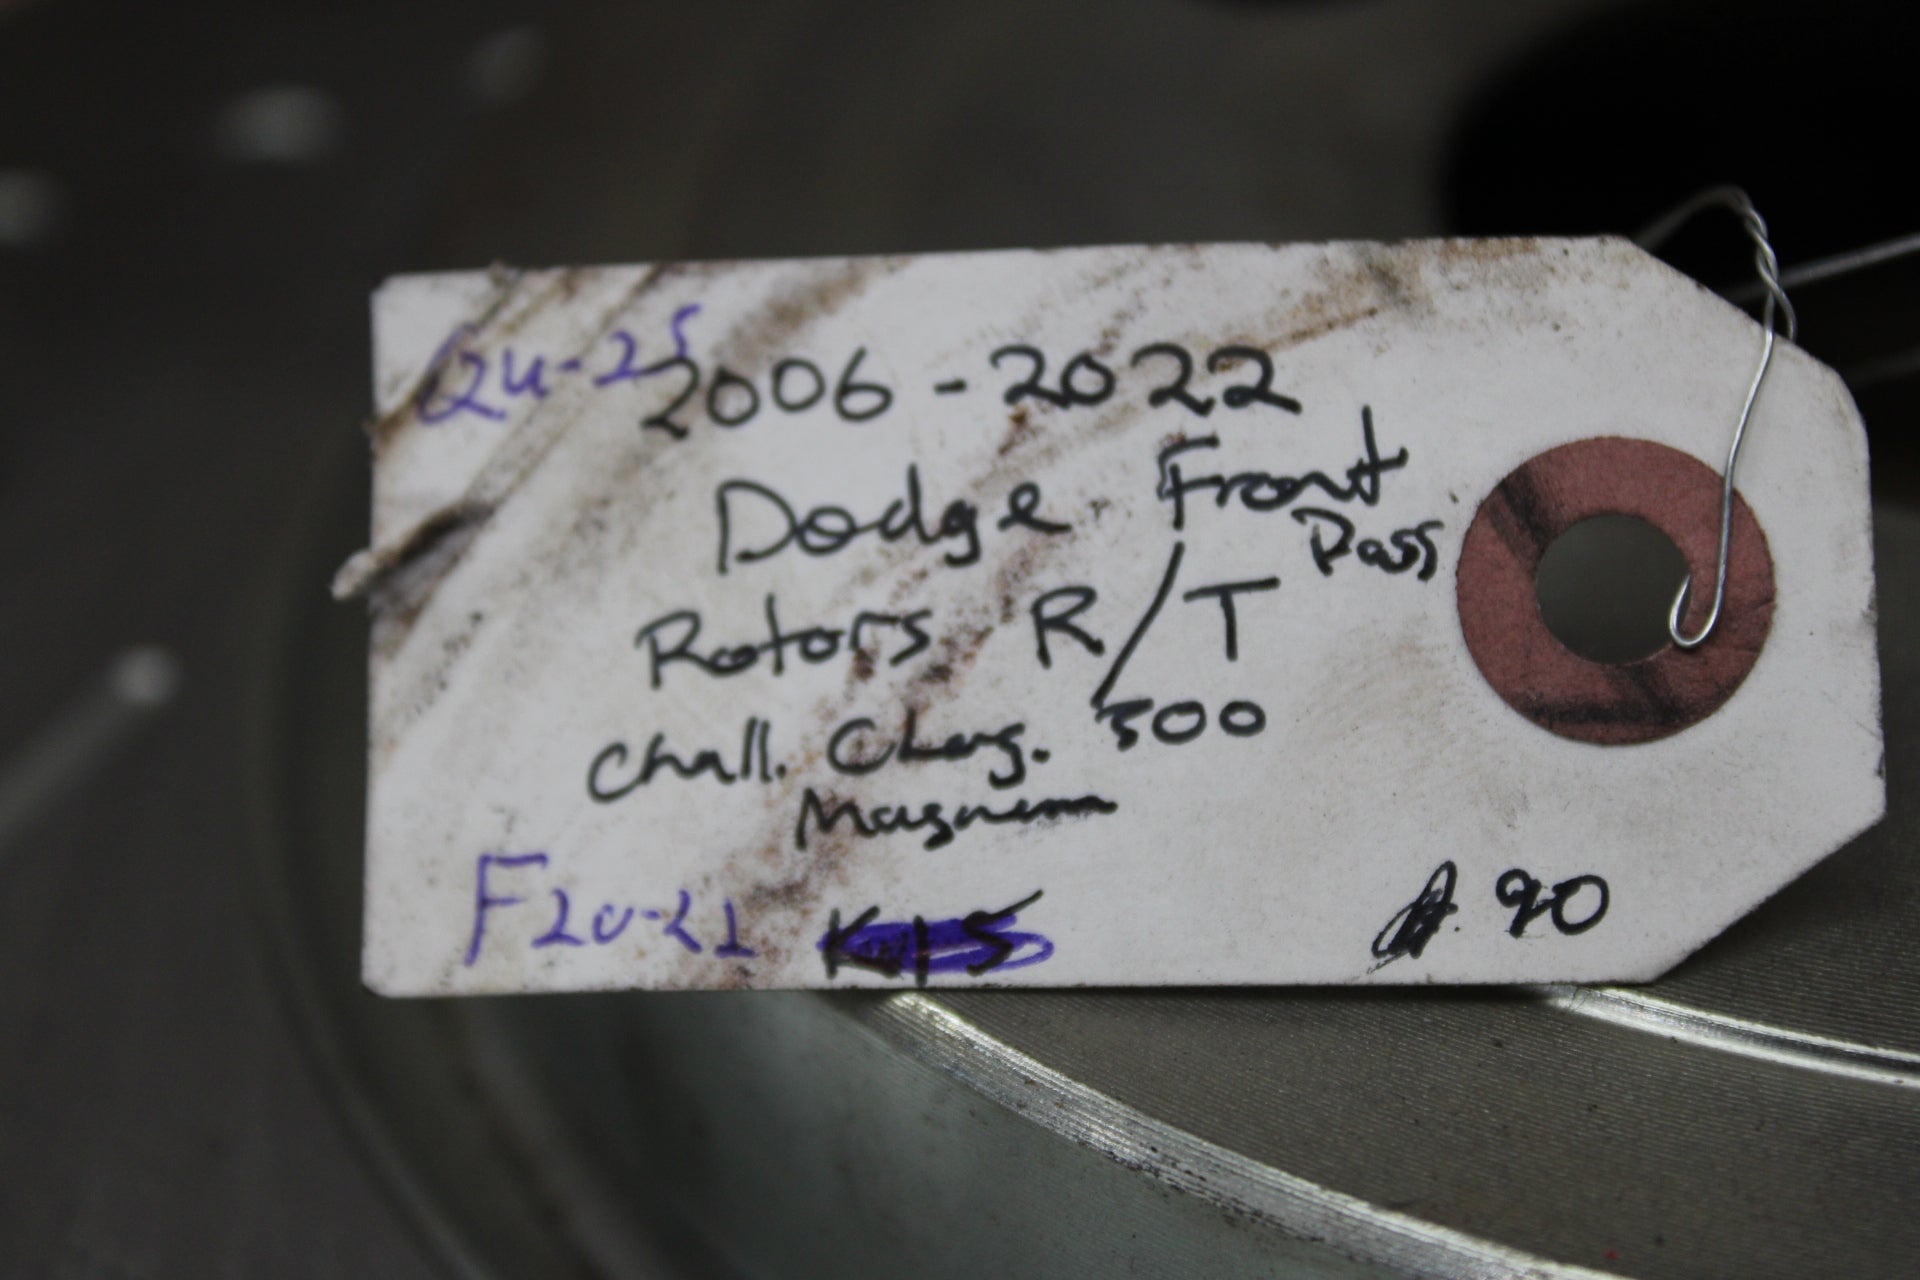 2006 - 2022
Dodge Front
Pass
Rotors R/T
Chall. Charg. 300
Magnum
90